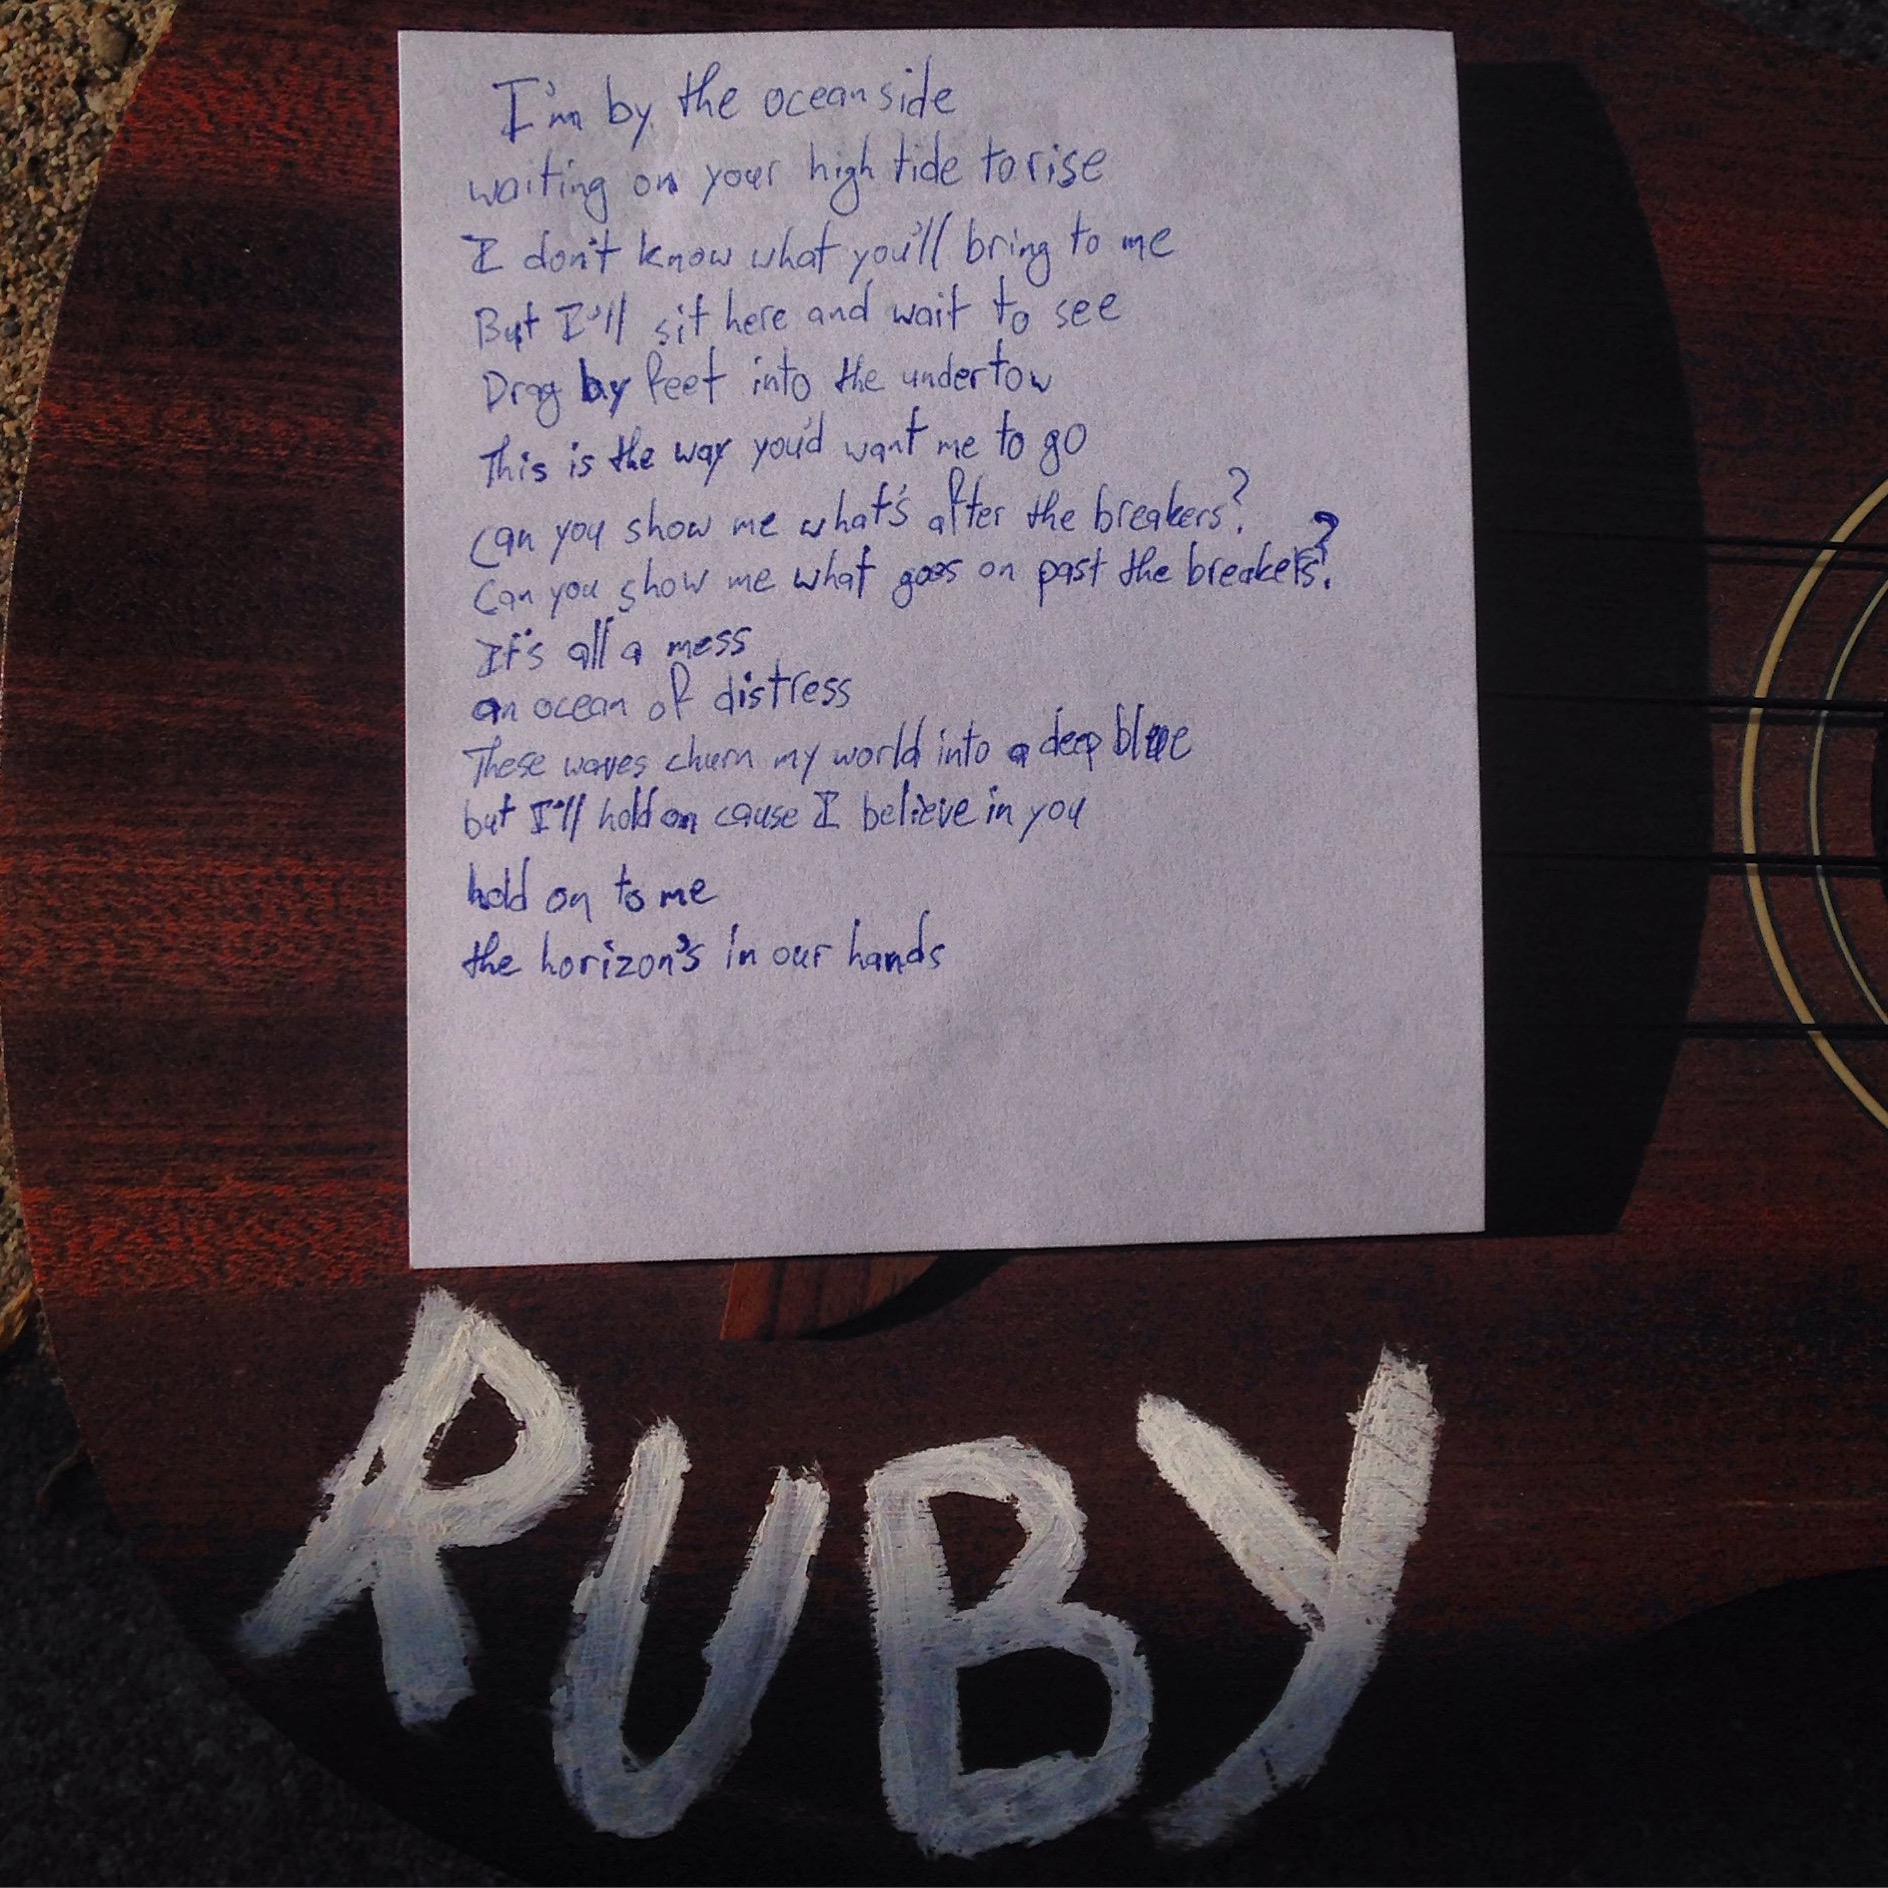 I'm by the oceanside
waiting on your high tide to rise
I don't know what you'll bring to me
But I'll sit here and wait to see
Drag by feet into the undertow
This is the way you'd want me to go
Can you show me what's after the breakers?
Can you show me what goes on past the breakers?
It's all a mess
an ocean of distress
These waves churn my world into a deep blue
but I'll hold on cause I believe in you
hold on to me
the horizon's in our hands
RUBY